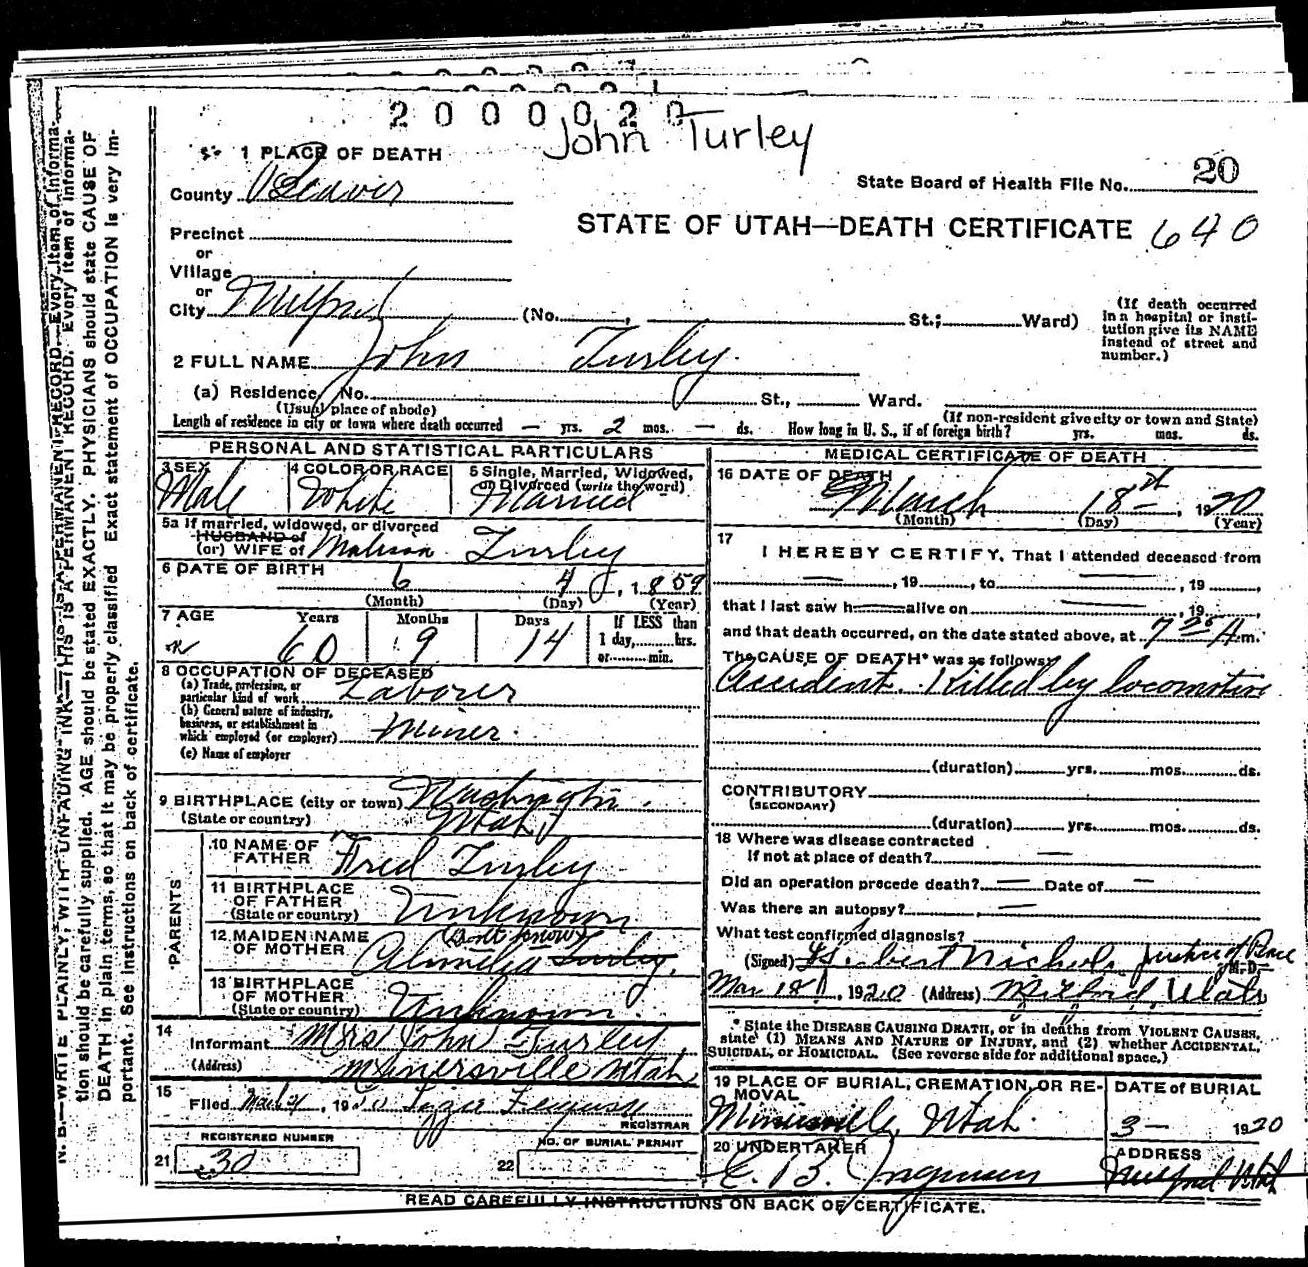 2 0 0 0 0 2 0
John Turley
1 PLACE OF DEATH
County Beaver
State Board of Health File No. 20
STATE OF UTAH—DEATH CERTIFICATE 640
Precinct
or
Village
or
City Milford (No. , St.; Ward)
(If death occurred in a hospital or insti-
tution give its NAME
instead of street and
number.)
2 FULL NAME John Turley.
(a) Residence, No. St., Ward.
(Usual place of abode) (If non-resident give city or town and State)
Length of residence in city or town where death occurred — yrs. 2 mos. — ds. How long in U. S., if of foreign birth? yrs. mos. ds.
PERSONAL AND STATISTICAL PARTICULARS
3 SEX Male
4 COLOR OR RACE White
5 Single, Married, Widowed,
or Divorced (write the word)
Married
5a If married, widowed, or divorced
HUSBAND of
(or) WIFE of Turley
6 DATE OF BIRTH 6 4, 1859
(Month) (Day) (Year)
7 AGE Years Months Days If LESS than
60 9 14 1 day, hrs.
or min.
8 OCCUPATION OF DECEASED
(a) Trade, profession, or
particular kind of work Laborer
(b) General nature of industry,
business, or establishment in
which employed (or employer) Miner.
(c) Name of employer
9 BIRTHPLACE (city or town) Washington.
(State or country) Utah
PARENTS
10 NAME OF
FATHER Fred Turley
11 BIRTHPLACE
OF FATHER
(State or country) Unknown
12 MAIDEN NAME
OF MOTHER (don't know)
Turley.
13 BIRTHPLACE
OF MOTHER
(State or country) Unknown.
14
Informant Mrs John Turley
(Address) Minersville Utah
15
Filed , 19
REGISTRAR
REGISTERED NUMBER
21 30
NO. OF BURIAL PERMIT
22
MEDICAL CERTIFICATE OF DEATH
16 DATE OF DEATH
March 18th, 1920
(Month) (Day) (Year)
17
I HEREBY CERTIFY, That I attended deceased from
— , 19 , to — , 19 ,
that I last saw h alive on — , 19 ,
and that death occurred, on the date stated above, at 7 25 A m.
The CAUSE OF DEATH* was as follows:
Accident. Killed by locomotive
(duration) yrs. mos. ds.
CONTRIBUTORY
(SECONDARY)
(duration) yrs. mos. ds.
18 Where was disease contracted
If not at place of death? —
Did an operation precede death? — Date of —
Was there an autopsy? —
What test confirmed diagnosis?
(Signed) Nichols Justice of Peace
M. D.
Mar 18, 1920 (Address) Milford, Utah
* State the DISEASE CAUSING DEATH, or in deaths from VIOLENT CAUSES,
state (1) MEANS AND NATURE OF INJURY, and (2) whether ACCIDENTAL,
SUICIDAL, or HOMICIDAL. (See reverse side for additional space.)
19 PLACE OF BURIAL, CREMATION, OR RE-
MOVAL
Minersville, Utah.
DATE of BURIAL
3— 1920
20 UNDERTAKER
ADDRESS
Milford Utah
READ CAREFULLY INSTRUCTIONS ON BACK OF CERTIFICATE.
N. B.—WRITE PLAINLY, WITH UNFADING INK—THIS IS A PERMANENT RECORD. Every item of informa-
tion should be carefully supplied. AGE should be stated EXACTLY. PHYSICIANS should state CAUSE OF
DEATH in plain terms, so that it may be properly classified. Exact statement of OCCUPATION is very im-
portant. See instructions on back of certificate.